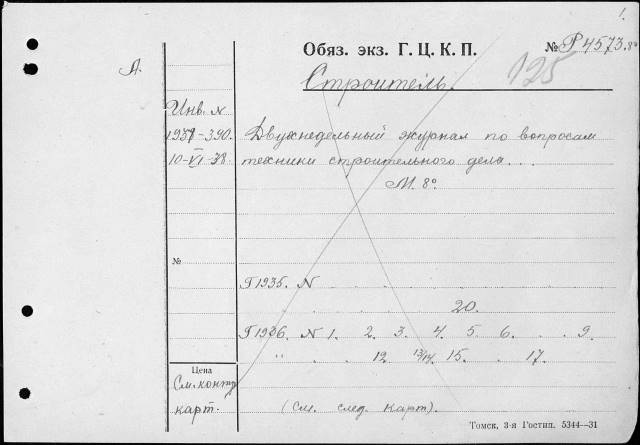 1.
Обяз. экз. Г. Ц. К. П. № Р4573.8°
А.
125
Строитель.
Инв. №
1937-390. Двухнедельный журнал по вопросам
10-VI-38. техники строительного дела...
М. 8°
№
Г 1935. N . . . . . .
. . . . 20.
Г 1936. N 1. 2. 3. 4. 5. 6. . . 9.
" . . 12. 13/14. 15. . 17.
Цена
См. контр.
карт. (См. след. карт).
Томск, 3-я Гостип. 5344—31